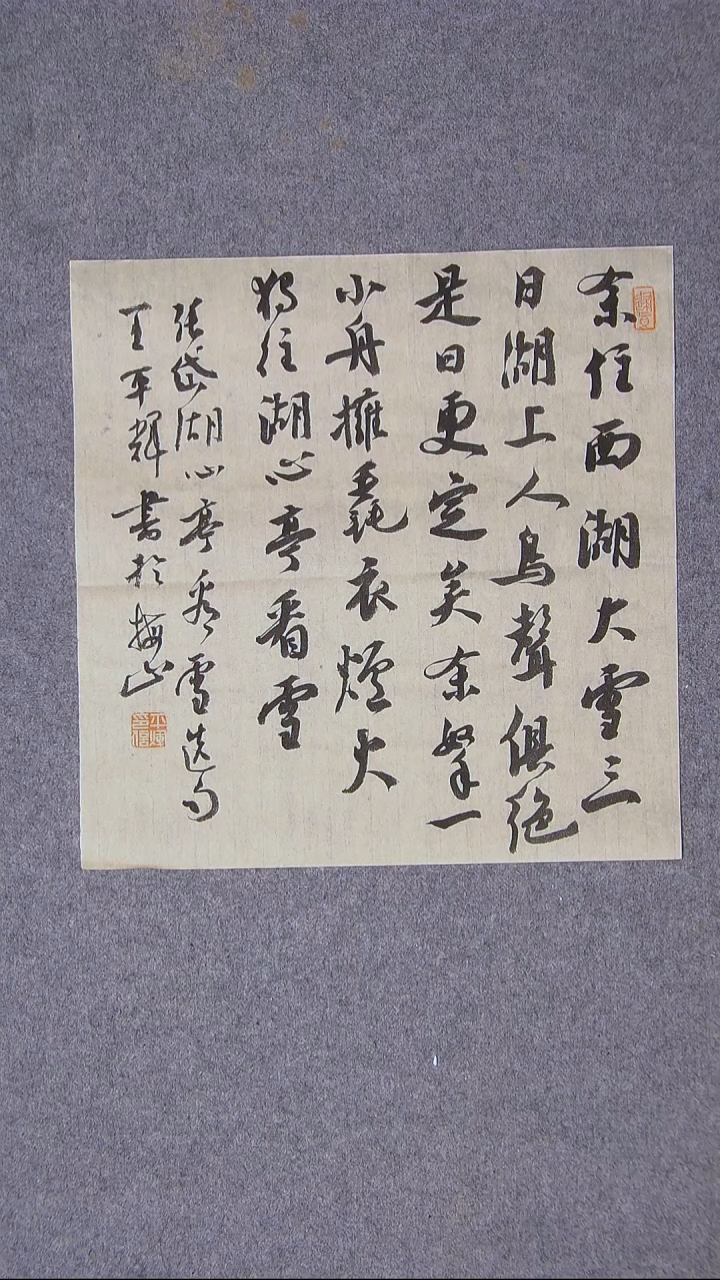 余住西湖大雪三
日湖上人鳥聲俱絶
是日更定矣余拏一
小舟擁毳衣爐火
獨往湖心亭看雪
張岱湖心亭看雪選句
王平輝書於梅山
平輝
印信